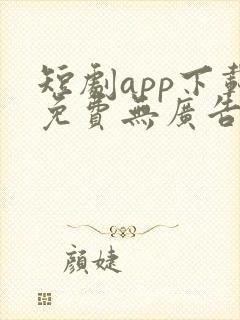 短劇app下載
免費無廣告
顏婕